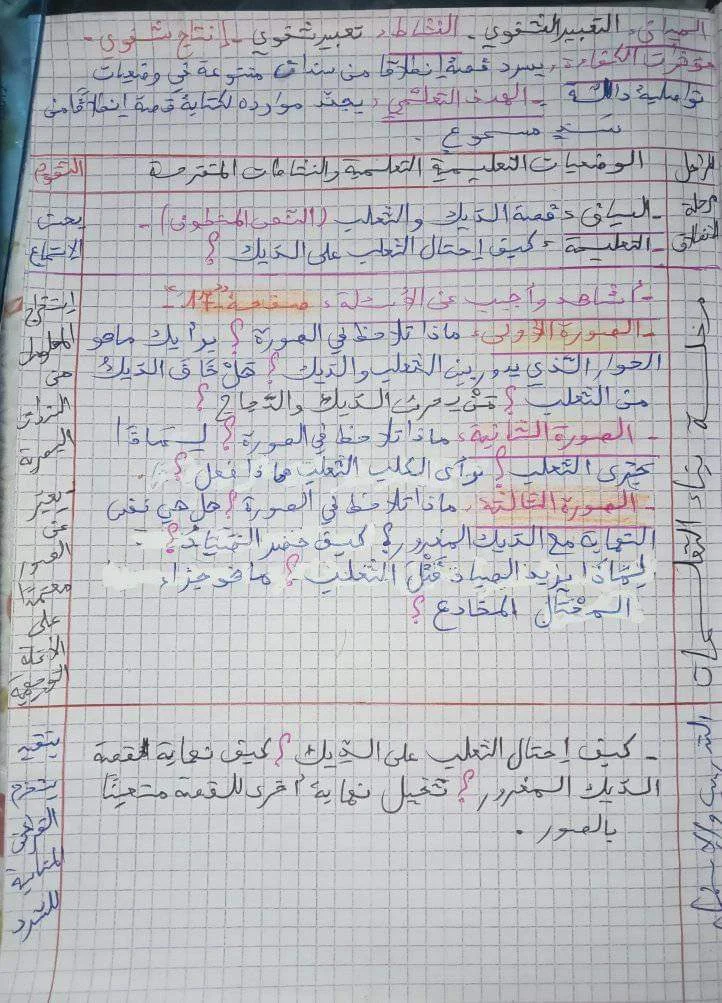 الميدان: التعبير الشفوي - النشاط: تعبير شفوي - إنتاج شفوي -
مؤشرات الكفاءة: يسرد قصة إنطلاقا من سندات متنوعة في وضعيات
تواصلية دالة - الهدف التعلمي: يجند موارده لكتابة قصة إنطلاقا من
سند مسموع.
المراحل
الوضعيات التعليمية التعلمية والنشاطات المقترحة
التقويم
مرحلة
الإنطلاق
- السياق: قصة الديك والثعلب (النص المنطوق) -
- التعليمة: كيف إحتال الثعلب على الديك؟
يحسن
الإستماع
مرحلة بناء التعلمات
- أشاهد وأجيب عن الأسئلة: صفحة "17" -
- الصورة الأولى: ماذا تلاحظ في الصورة؟ برأيك ماهو
الحوار الذي يدور بين الثعلب والديك؟ هل خاف الديك
من الثعلب؟ من يحرس الديك والدجاج؟
- الصورة الثانية: ماذا تلاحظ في الصورة؟ لماذا
يجري الثعلب؟ رأى الكلب الثعلب ماذا فعل؟
- الصورة الثالثة: ماذا تلاحظ في الصورة؟ هل هي نفس
النهاية مع الديك المغرور؟ كيف حضر الصياد؟
لماذا يريد الصياد قتل الثعلب؟ ما هو جزاء
المحتال المخادع؟
المعلومات
من
السندات
البصرية
- يعبر
عن
الصور
معتمدا
على
الأسئلة
التوجيهية
التدريب والإستثمار
- كيف إحتال الثعلب على الديك؟ كيف نهاية قصة
الديك المغرور؟ تخيل نهاية أخرى للقصة مستعينا
بالصور.
يتقيد
يحترم
القرائن
للسرد